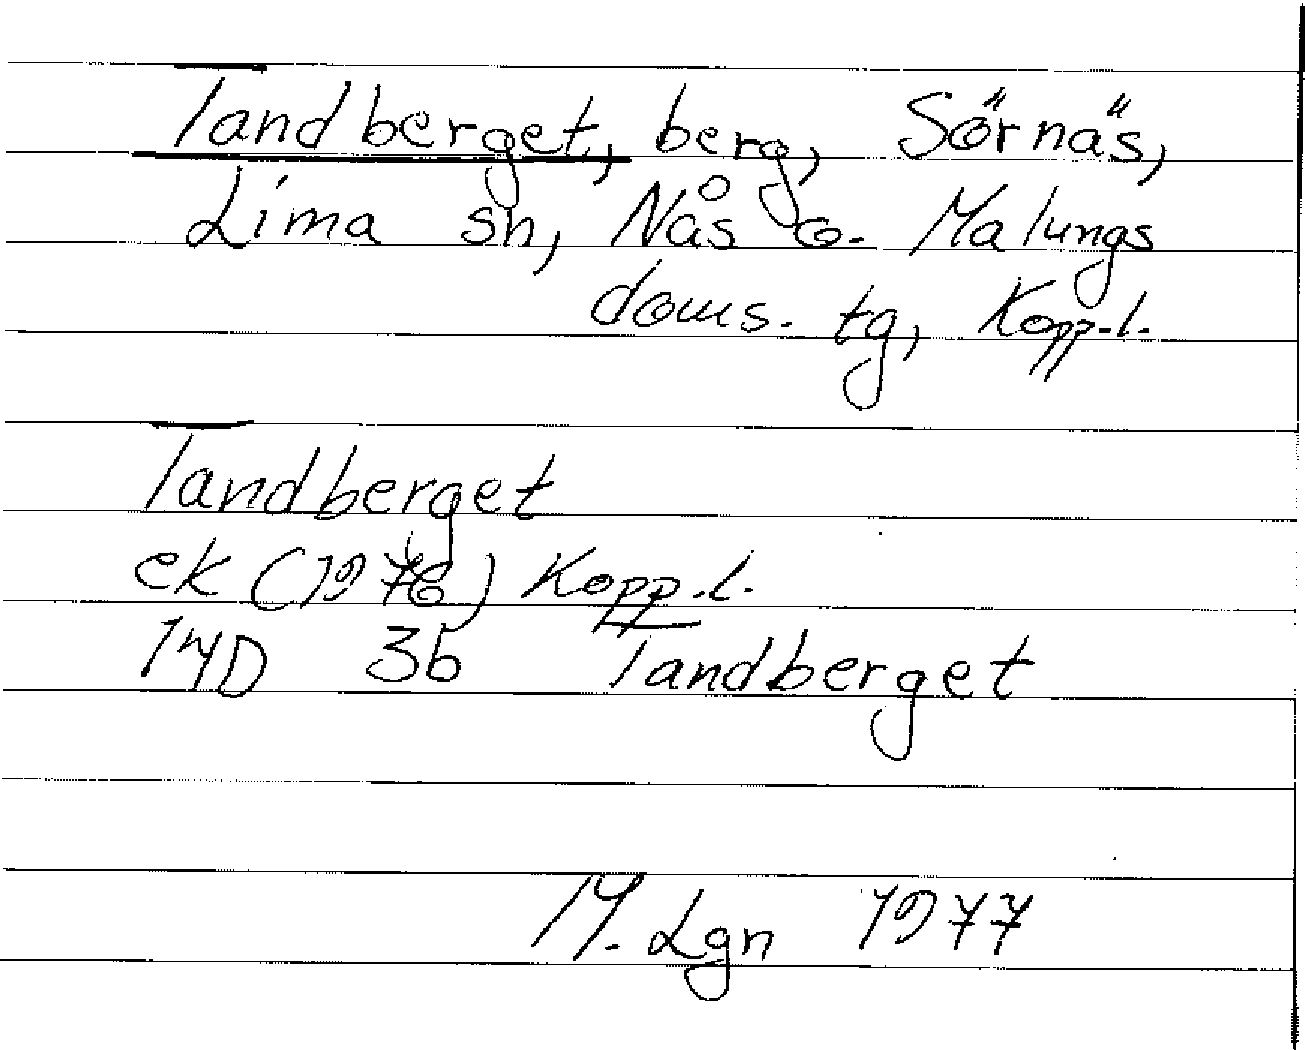 Tandberget, berg, Sörnäs,
Lima sn, Nås o. Malungs
doms. tg, Kopp.l.
Tandberget
ek (1976) Kopp.l.
14D 3b Tandberget
M. Lgn 1977